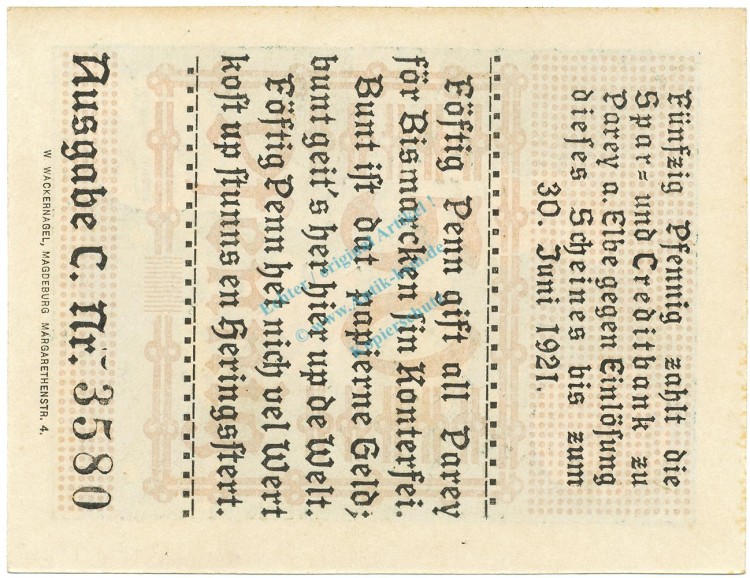 Fünfzig Pfennig zahlt die
Spar= und Creditbank zu
Parey a. Elbe gegen Einlösung
dieses Scheines bis zum
30. Juni 1921.
Föftig Penn gift all Parey
för Bismarcken sin Konterfei.
Bunt ist dat papierne Geld;
bunt geit's her hier up de Welt.
Föftig Penn het nich vel Wert
kost up stunns en Heringsstert.
Ausgabe C. Nr. 3580
W. WACKERNAGEL, MAGDEBURG MARGARETHENSTR. 4.
Echter / original Artikel !
© www.antik-kon.de
Kopierschutz